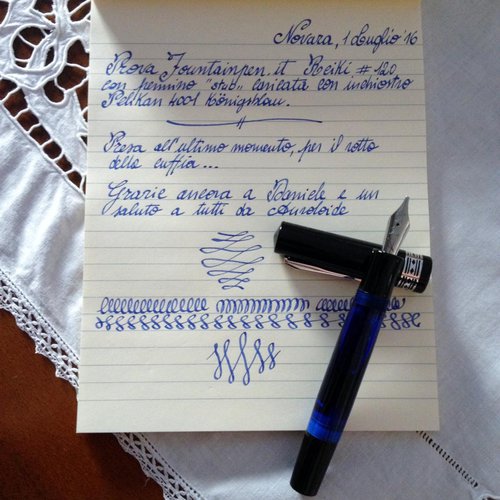 Novara, 1 Luglio 16
Prova Fountainpen.it Reiki # 120
con pennino "stub" caricata con inchiostro
Pelikan 4001 Königsblau.
Presa all'ultimo momento, per il rotto
della cuffia...
Grazie ancora a Daniele e un
saluto a tutti da Auroloide